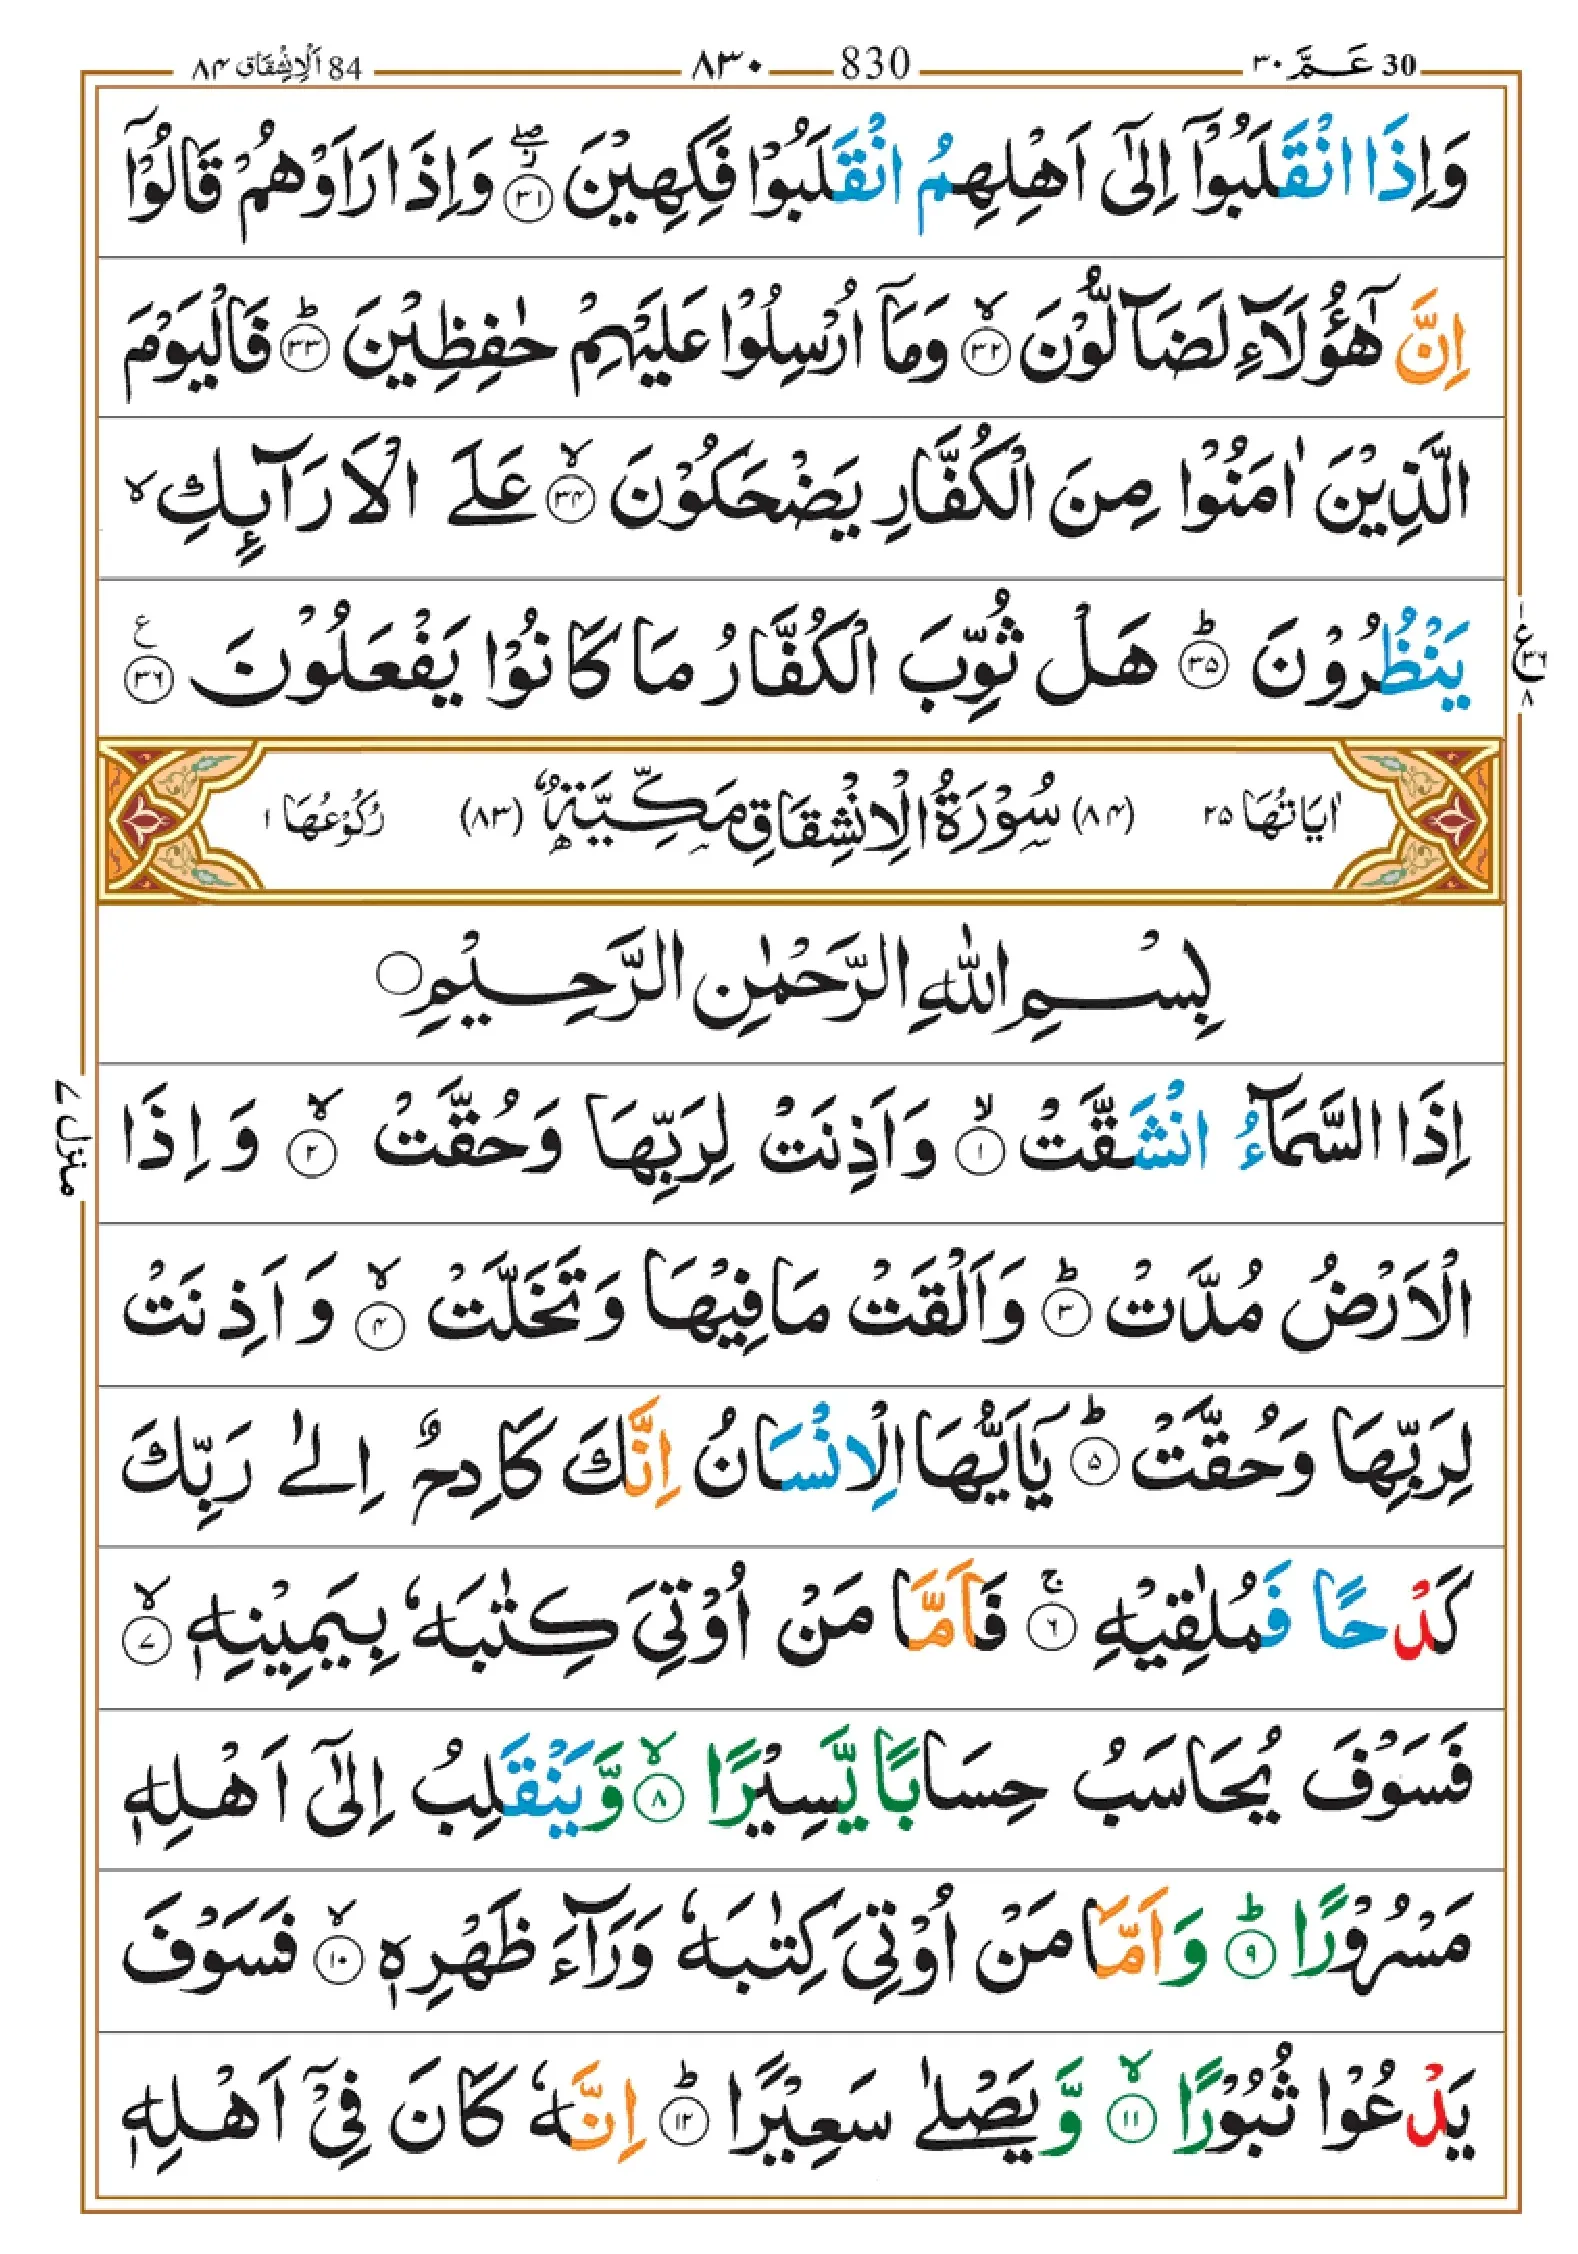 30 عَمَّ ٣٠ 830 ٨٣٠ 84 اَلْاِنْشِقَاق ٨۴
وَاِذَا انْقَلَبُوْۤا اِلٰۤى اَهْلِهِمُ انْقَلَبُوْا فَكِهِيْنَ ۖ ٣١ وَاِذَا رَاَوْهُمْ قَالُوْۤا
اِنَّ هٰۤؤُلَآءِ لَضَآلُّوْنَ ۙ ٣٢ وَمَاۤ اُرْسِلُوْا عَلَيْهِمْ حٰفِظِيْنَ ؕ ٣٣ فَالْيَوْمَ
الَّذِيْنَ اٰمَنُوْا مِنَ الْكُفَّارِ يَضْحَكُوْنَ ۙ ٣۴ عَلَى الْاَرَآئِكِ ۙ
يَنْظُرُوْنَ ؕ ٣۵ هَلْ ثُوِّبَ الْكُفَّارُ مَا كَانُوْا يَفْعَلُوْنَ ع ٣٦
١ ع ٣٦ ٨
اٰيَاتُهَا ٢۵ (٨۴) سُوْرَةُ الْاِنْشِقَاقِ مَكِّيَّةٌ (٨٣) رُكُوْعُهَا ١
بِسْمِ اللّٰهِ الرَّحْمٰنِ الرَّحِيْمِ ۝
اِذَا السَّمَآءُ انْشَقَّتْ ۙ ١ وَاَذِنَتْ لِرَبِّهَا وَحُقَّتْ ۙ ٢ وَاِذَا
منزل ٧
الْاَرْضُ مُدَّتْ ؕ ٣ وَاَلْقَتْ مَا فِيْهَا وَتَخَلَّتْ ۙ ۴ وَاَذِنَتْ
لِرَبِّهَا وَحُقَّتْ ؕ ۵ يٰۤاَيُّهَا الْاِنْسَانُ اِنَّكَ كَادِحٌ اِلٰى رَبِّكَ
كَدْحًا فَمُلٰقِيْهِ ۚ ٦ فَاَمَّا مَنْ اُوْتِيَ كِتٰبَهٗ بِيَمِيْنِهٖ ۙ ٧
فَسَوْفَ يُحَاسَبُ حِسَابًا يَّسِيْرًا ۙ ٨ وَّيَنْقَلِبُ اِلٰۤى اَهْلِهٖ
مَسْرُوْرًا ؕ ٩ وَاَمَّا مَنْ اُوْتِيَ كِتٰبَهٗ وَرَآءَ ظَهْرِهٖ ۙ ١٠ فَسَوْفَ
يَدْعُوْا ثُبُوْرًا ۙ ١١ وَّيَصْلٰى سَعِيْرًا ؕ ١٢ اِنَّهٗ كَانَ فِيْۤ اَهْلِهٖ